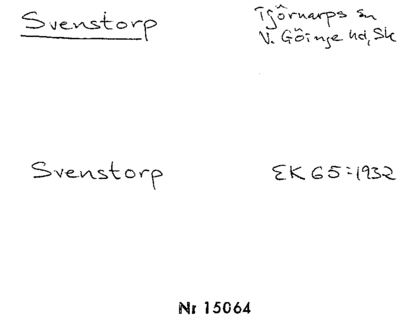 Svenstorp
Tjörnarps sn
V. Göinge hd, Sk
Svenstorp
EK 65:1932
Nr 15064